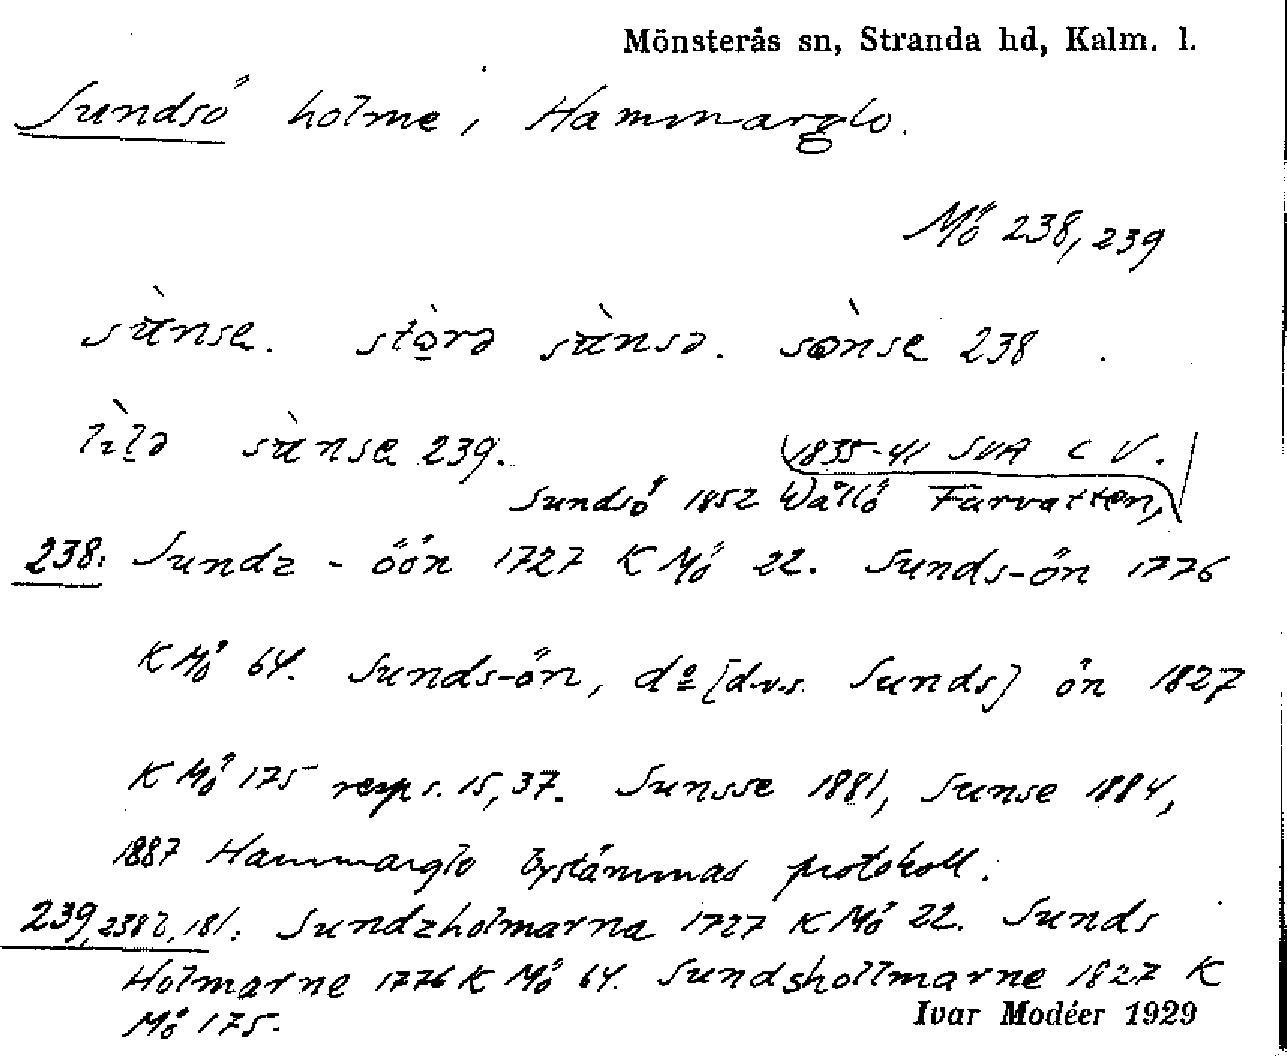 Mönsterås sn, Stranda hd, Kalm. l.
Sundsö holme, Hammarglo.
Mö 238, 239
sùnse. stòrə sùnsə. sònse 238
lìlə sùnse 239.
1835-41 SVA C V.
Sundsö 1852 Wållö Farvatten,
238: Sundz - öön 1727 K Mö 22. Sunds-ön 1776
K Mö 64. Sunds-ön, do [dvs. Sunds] ön 1827
K Mö 175 resp s. 15, 37. Sunsse 1881, Sunse 1884,
1887 Hammarglo bystämmas protokoll.
239, 181: Sundzholmarna 1727 K Mö 22. Sunds
Holmarne 1776 K Mö 64. Sundshollmarne 1827 K
Mö 175.
Ivar Modéer 1929